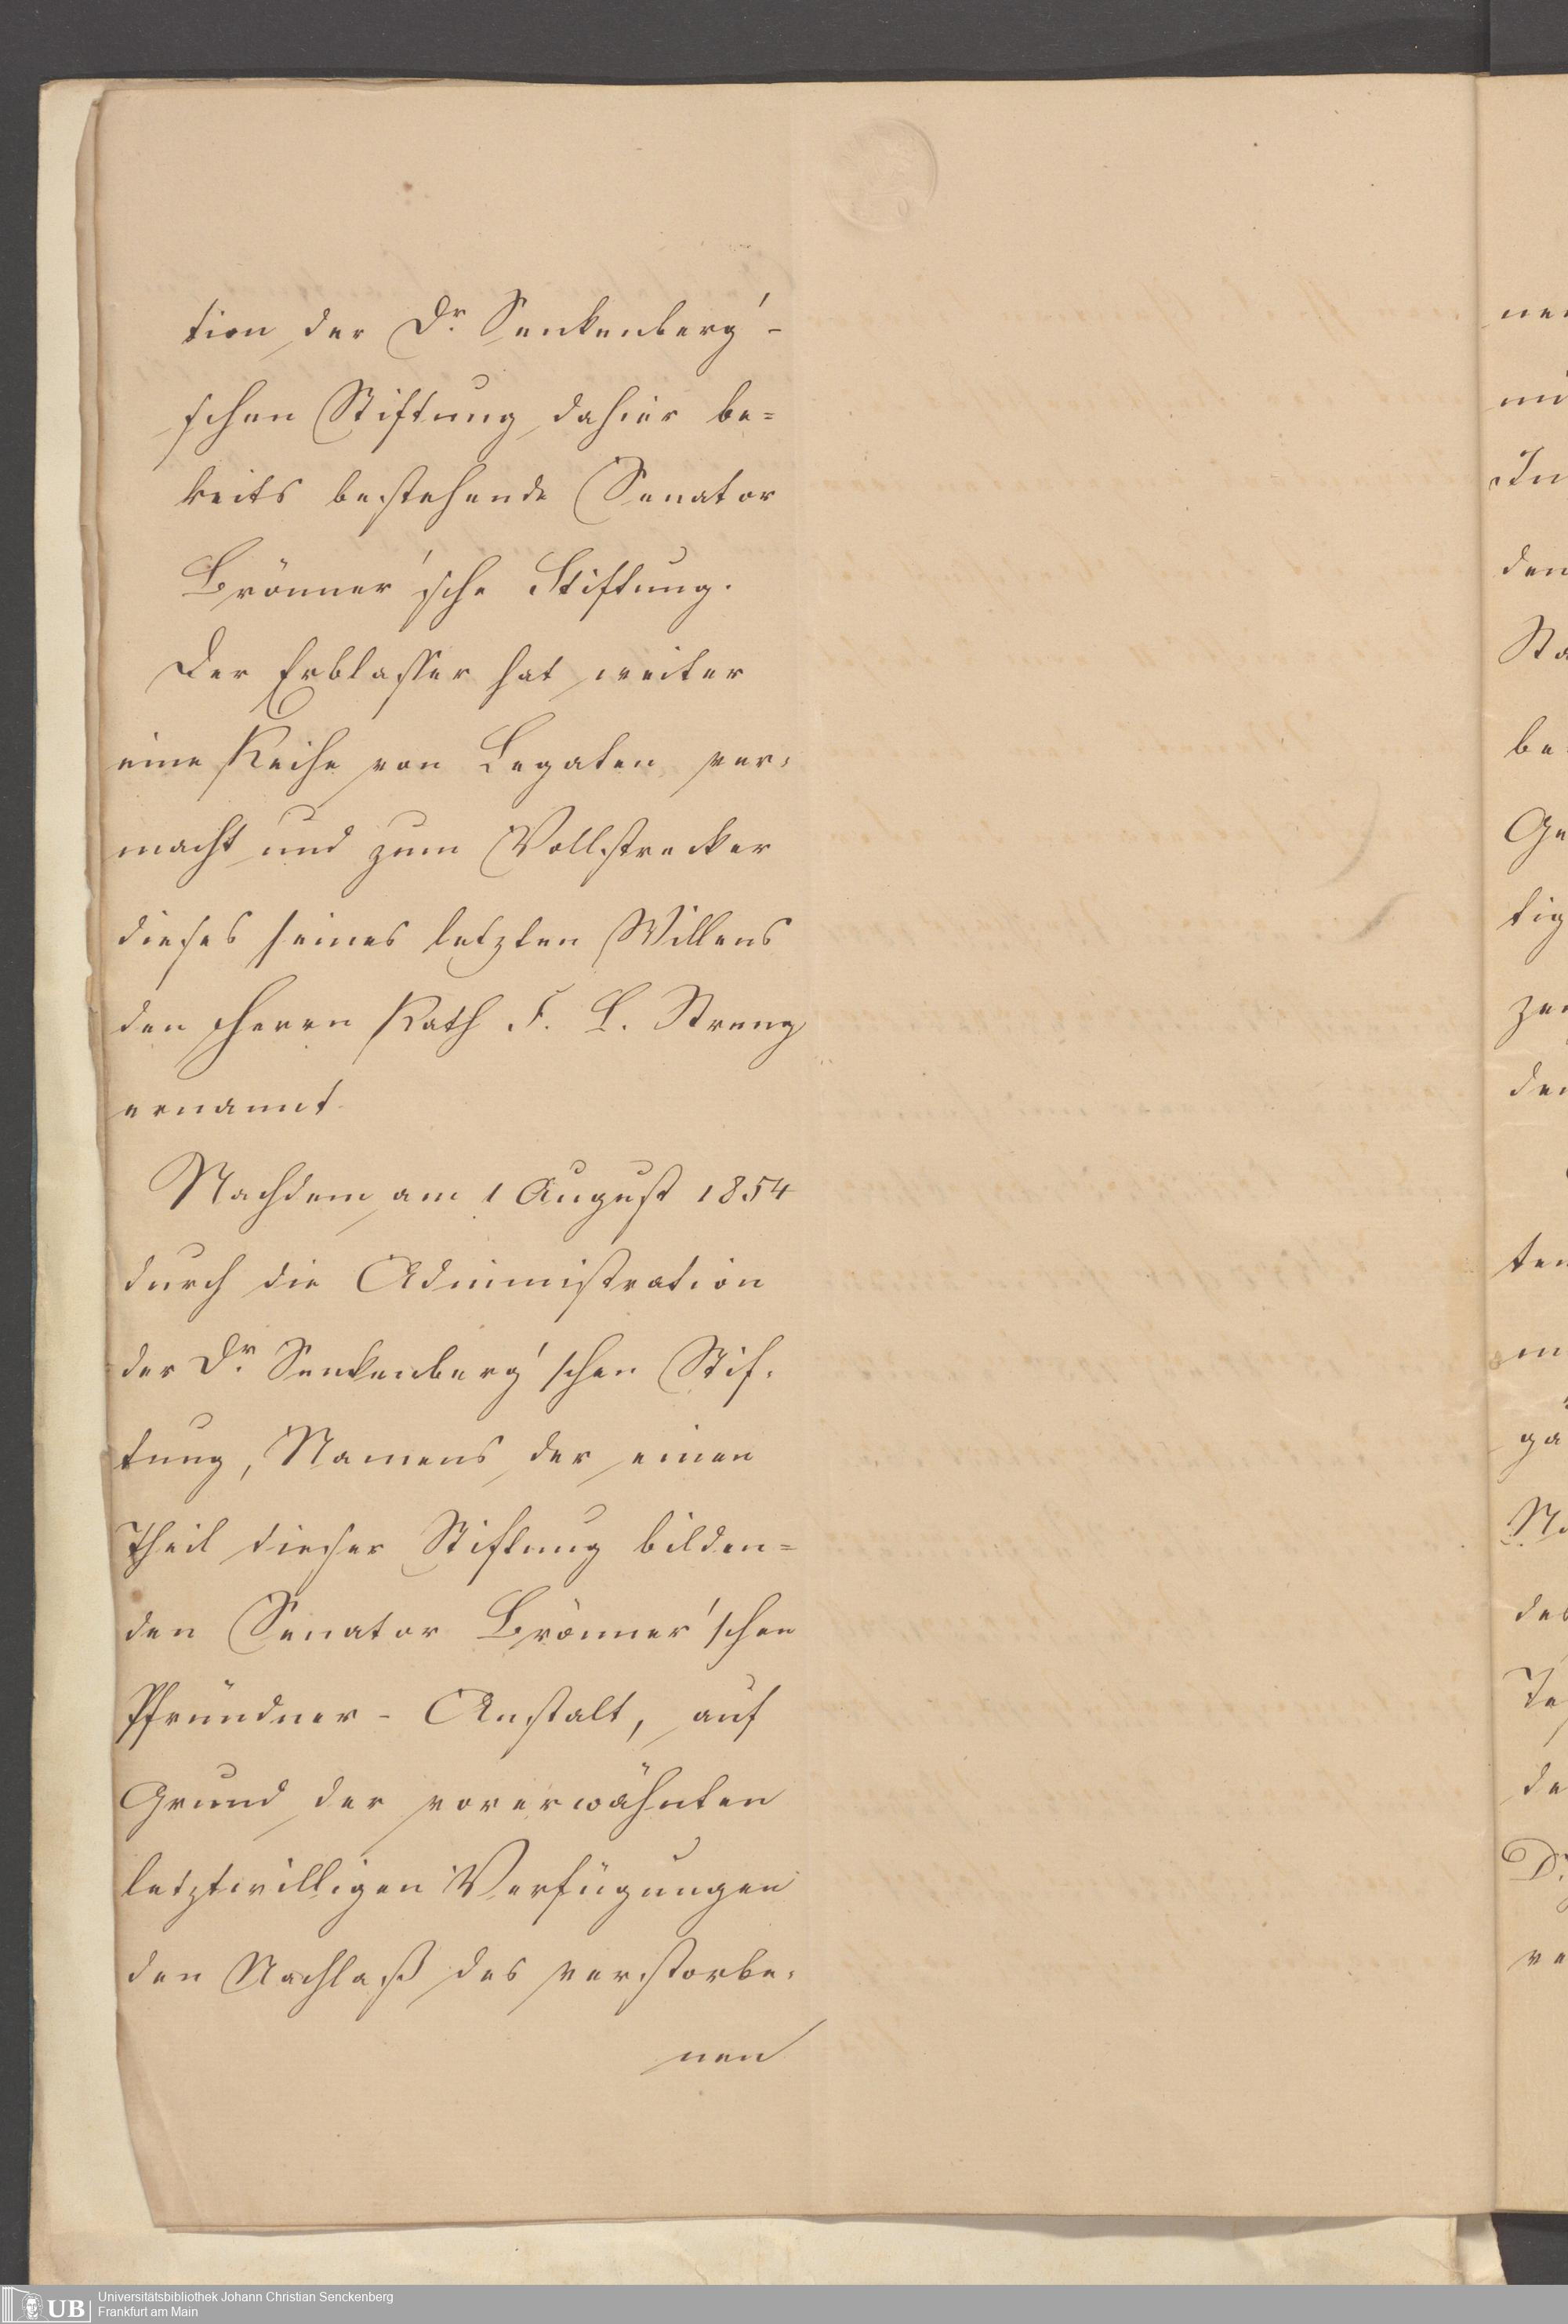 tion der Dr. Senkenberg'-
schen Stiftung dahier be=
reits bestehende Senator
Brönner'sche Stiftung.
Der Erblasser hat weiter
eine Reihe von Legaten ver-
macht und zum Vollstrecker
dieses seines letzten Willens
den Herrn Rath F. L. Streng
ernannt.
Nachdem am 1 August 1854
durch die Administration
der Dr. Senkenberg'schen Stif-
tung, Namens der einen
Theil dieser Stiftung bilden=
den Senator Brönner'schen
Pfründner-Anstalt, auf
Grund der vorerwähnten
letztwilligen Verfügungen
den Nachlaß des verstorbe-
nen
Universitätsbibliothek Johann Christian Senckenberg
Frankfurt am Main
UB